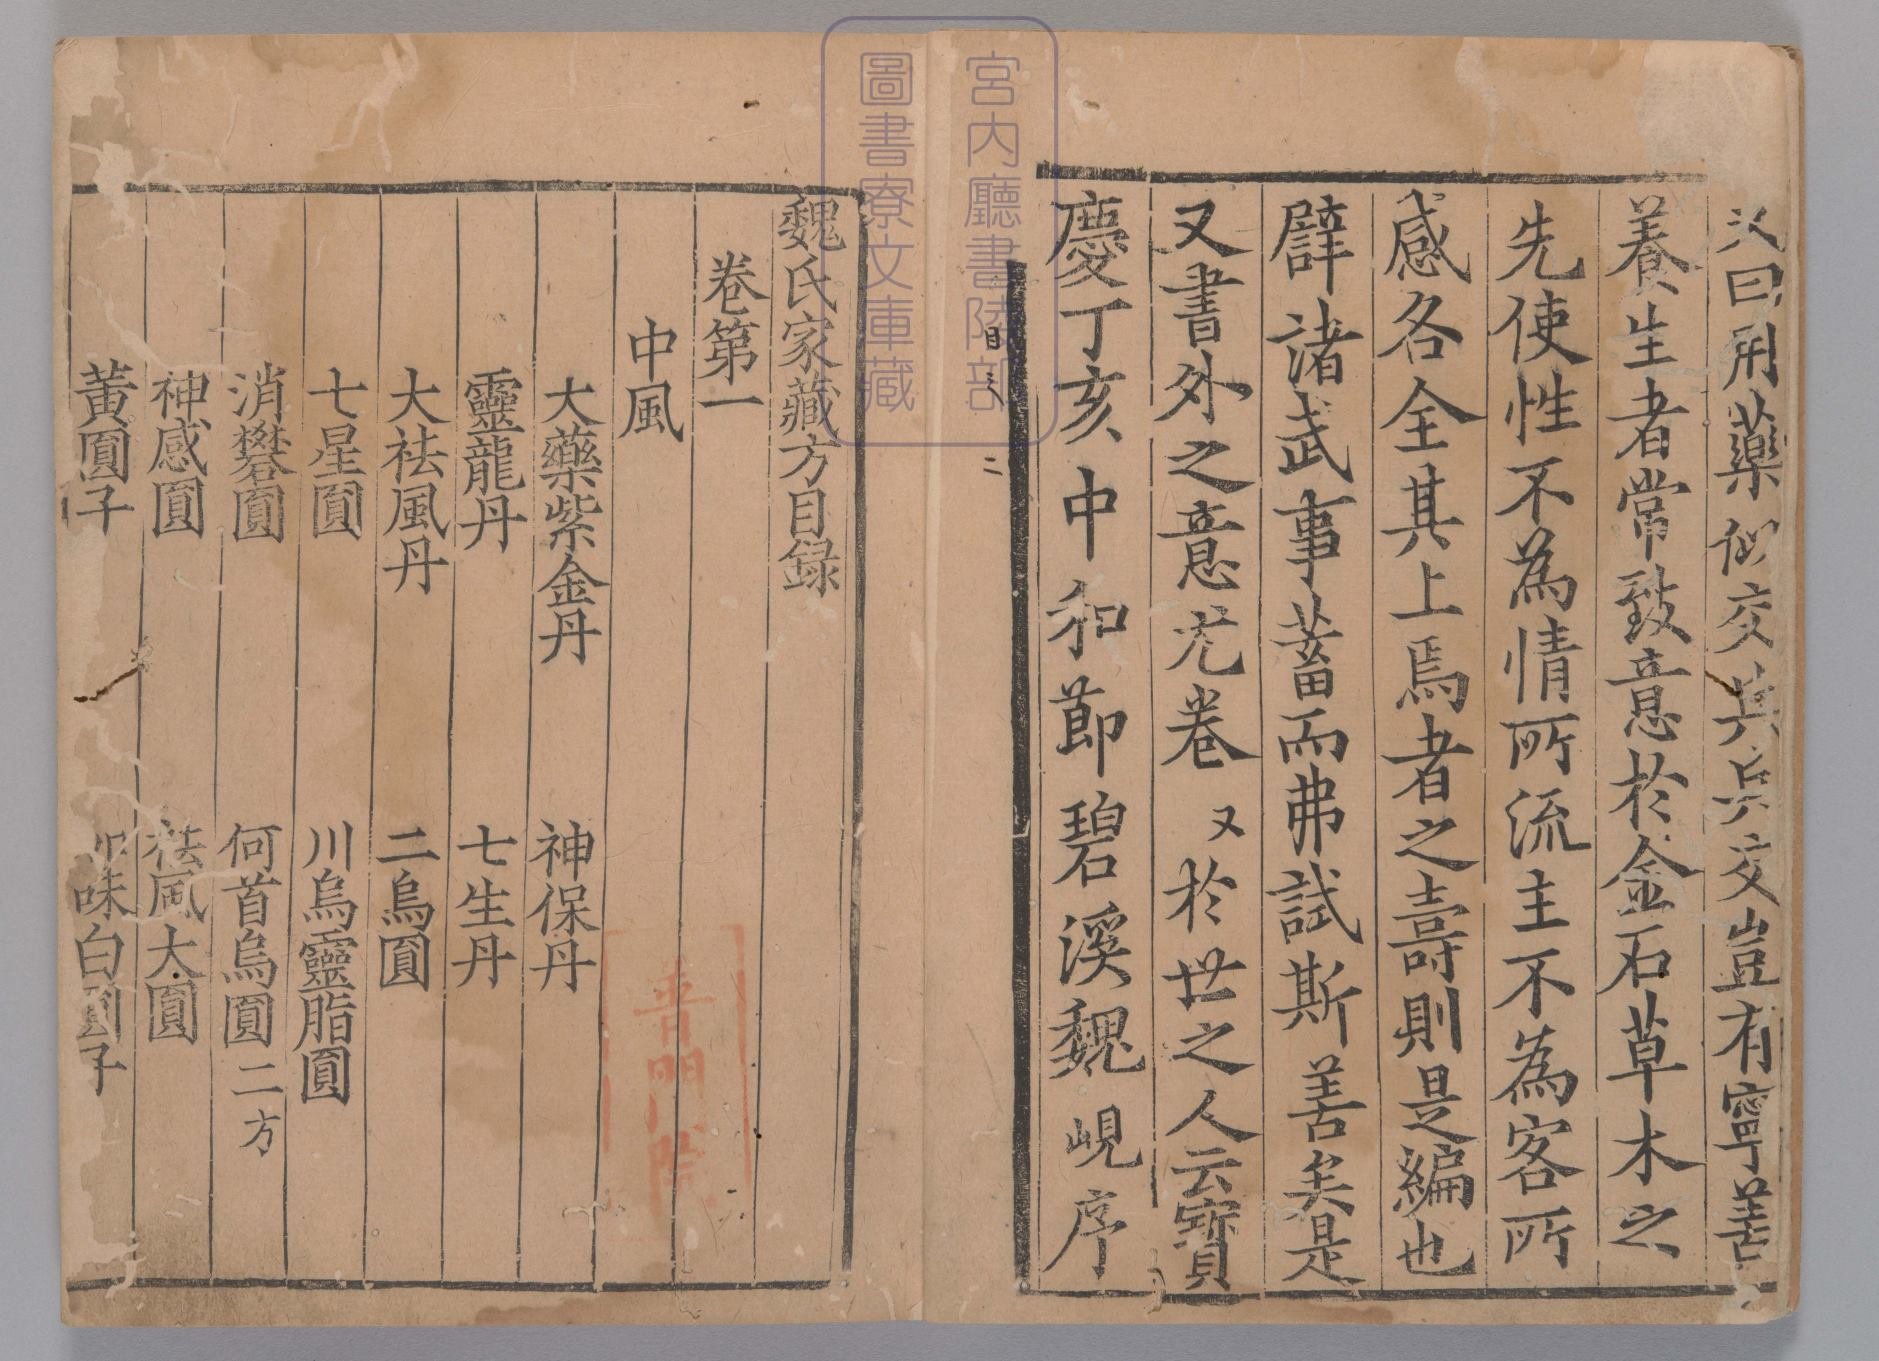 又曰用藥似交兵兵交豈有寧善
養生者常致意於金石草木之
先使性不為情所流主不為客所
感各全其上焉者之壽則是編也
辟諸武事蓄而弗試斯善矣是
又書外之意尤卷又於世之人云寶
慶丁亥中和節碧溪魏峴序
宮內廳書陵部
圖書寮文庫藏
目
二
魏氏家藏方目録
卷第一
中風
大藥紫金丹 神保丹
靈龍丹 七生丹
大祛風丹 二烏圓
七星圓 川烏靈脂圓
消礬圓 何首烏圓二方
神感圓 祛風大圓
黃圓子 味白圓子
普門院